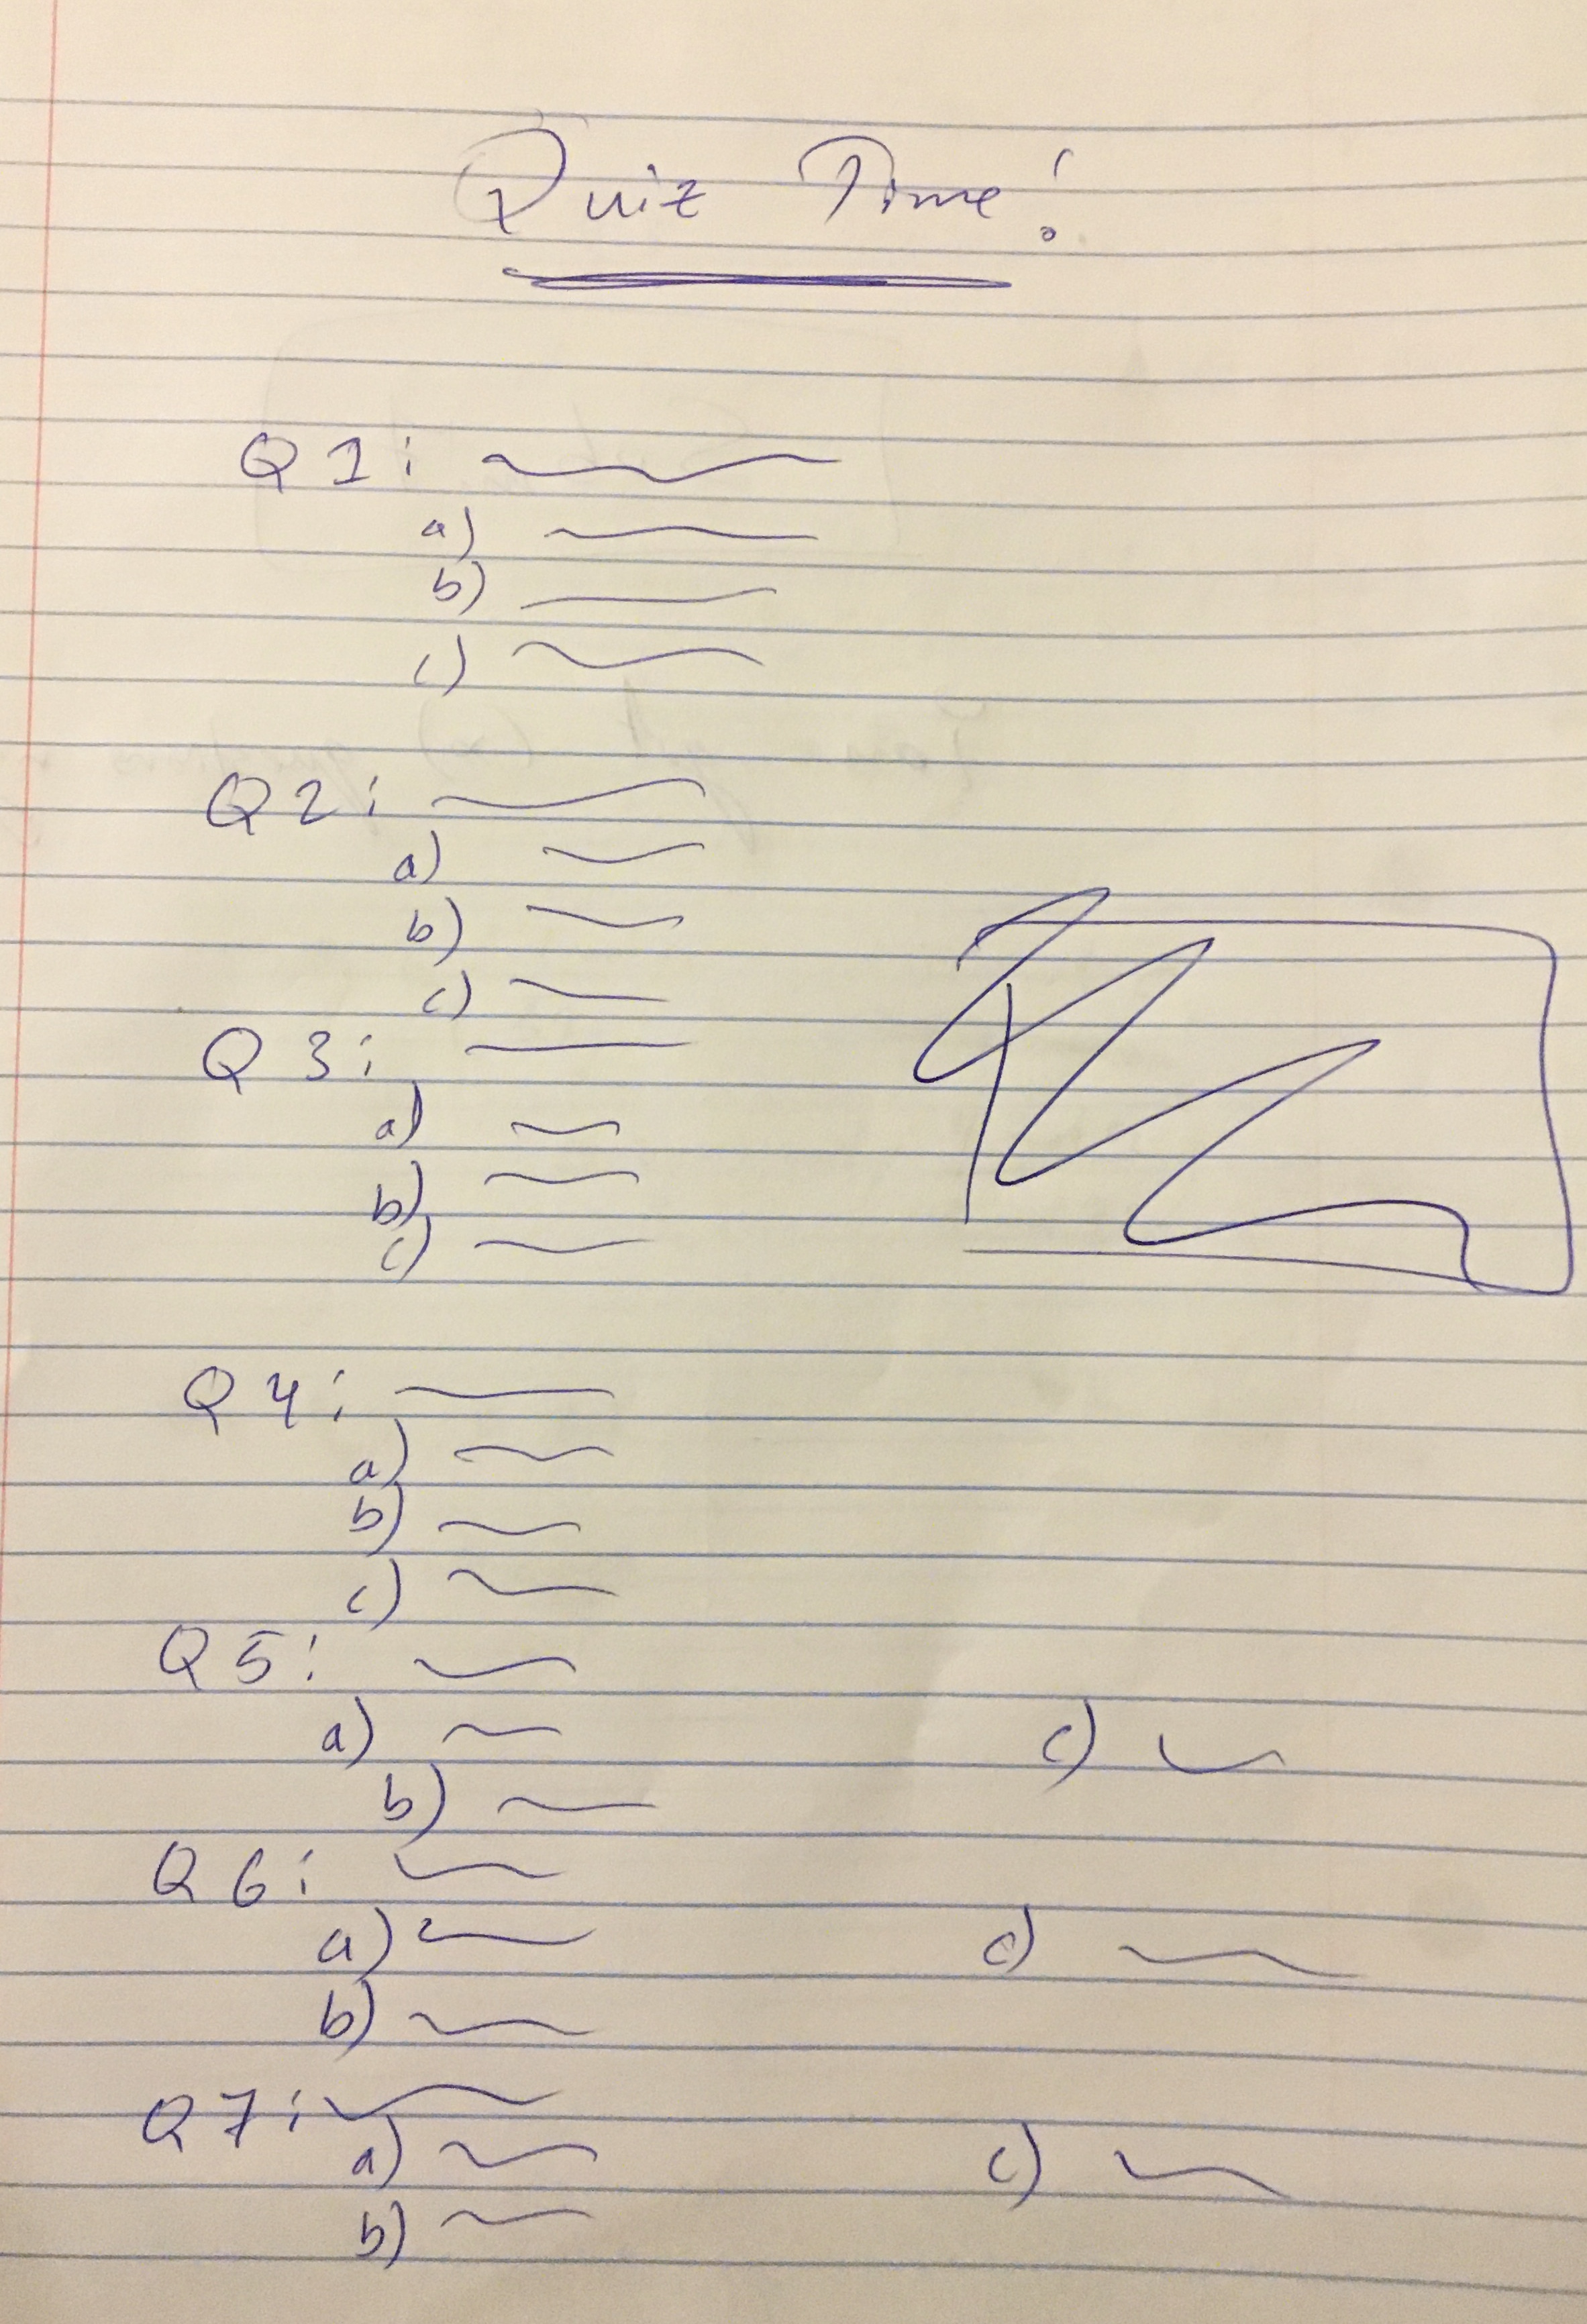 Quiz Time!
Q1:
a)
b)
c)
Q2:
a)
b)
c)
Q3:
a)
b)
c)
Q4:
a)
b)
c)
Q5:
a)
b)
c)
Q6:
a)
b)
c)
Q7:
a)
b)
c)